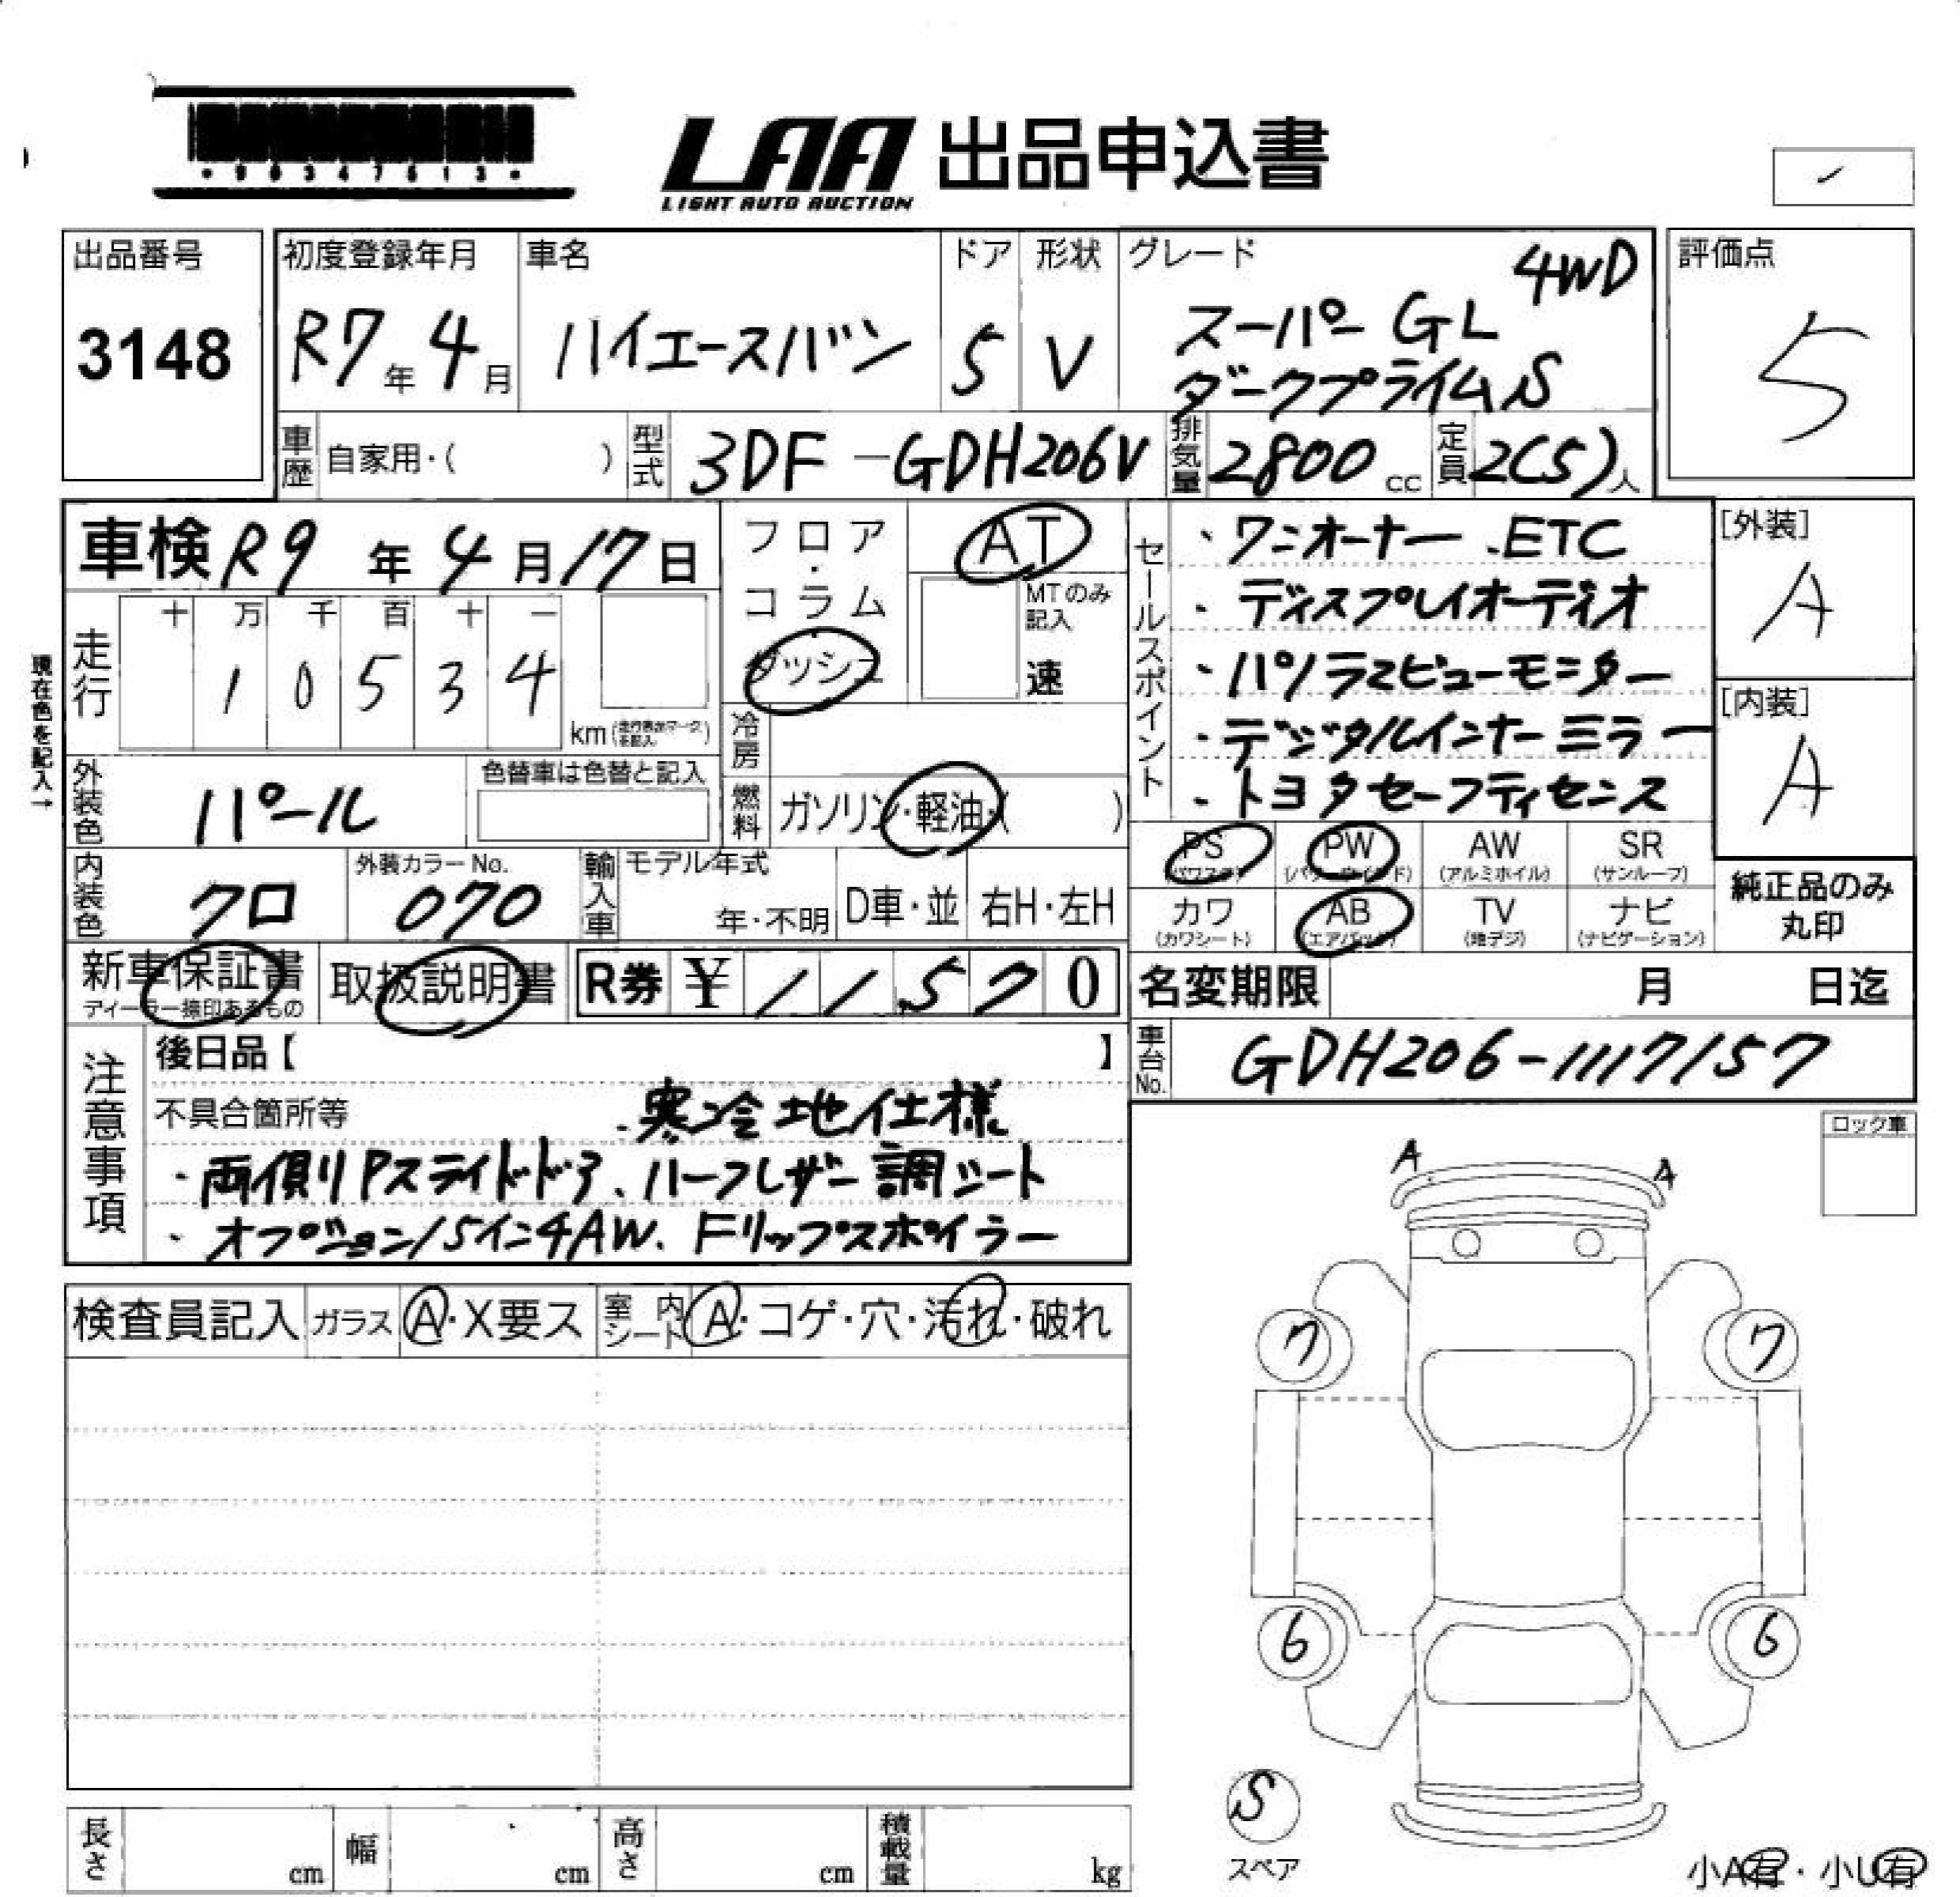 ・90347613・
LAA 出品申込書
LIGHT AUTO AUCTION
出品番号
3148
初度登録年月
R7年4月
車名
ハイエースバン
ドア
5
形状
V
グレード
4WD
スーパーGL
ダークプライムS
評価点
5
車歴
自家用・( )
型式
3DF-GDH206V
排気量
2800cc
定員
2(5)人
車検 R9年4月17日
フロア・コラム・ダッシュ
AT
MTのみ記入
速
セールスポイント
・ワンオーナー、ETC
・ディスプレイオーディオ
・パノラマビューモニター
・デジタルインナーミラー
・トヨタセーフティセンス
[外装]
A
[内装]
A
現在色を記入→
走行
十 万 千 百 十 一
1 0 5 3 4
km(走行表示マークを記入)
冷房
燃料
ガソリン・軽油・( )
外装色
パール
色替車は色替と記入
PS(パワステ) PW(パワーウインド) AW(アルミホイル) SR(サンルーフ)
カワ(カワシート) AB(エアバック) TV(地デジ) ナビ(ナビゲーション)
純正品のみ丸印
内装色
クロ
外装カラーNo.
070
輸入車
モデル年式
年・不明
D車・並
右H・左H
新車保証書
ディーラー捺印あるもの
取扱説明書
R券 ¥ 11,570
名変期限 月 日迄
車台No.
GDH206-1117157
注意事項
後日品【 】
不具合箇所等
・寒冷地仕様
・両側Pスライドドア、ハーフレザー調シート
・オプション15インチAW、Fリップスポイラー
ロック車
検査員記入 ガラス A・X要ス 室内シート A・コゲ・穴・汚れ・破れ
A A
7 7
6 6
S
スペア
長さ cm 幅 cm 高さ cm 積載量 kg
小A有・小U有